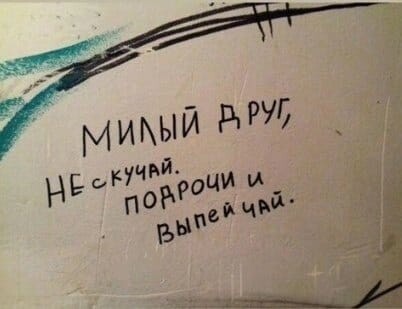 МИЛЫЙ ДРУГ,
НЕ СКУЧАЙ.
ПОДРОЧИ И
ВЫПЕЙ ЧАЙ.